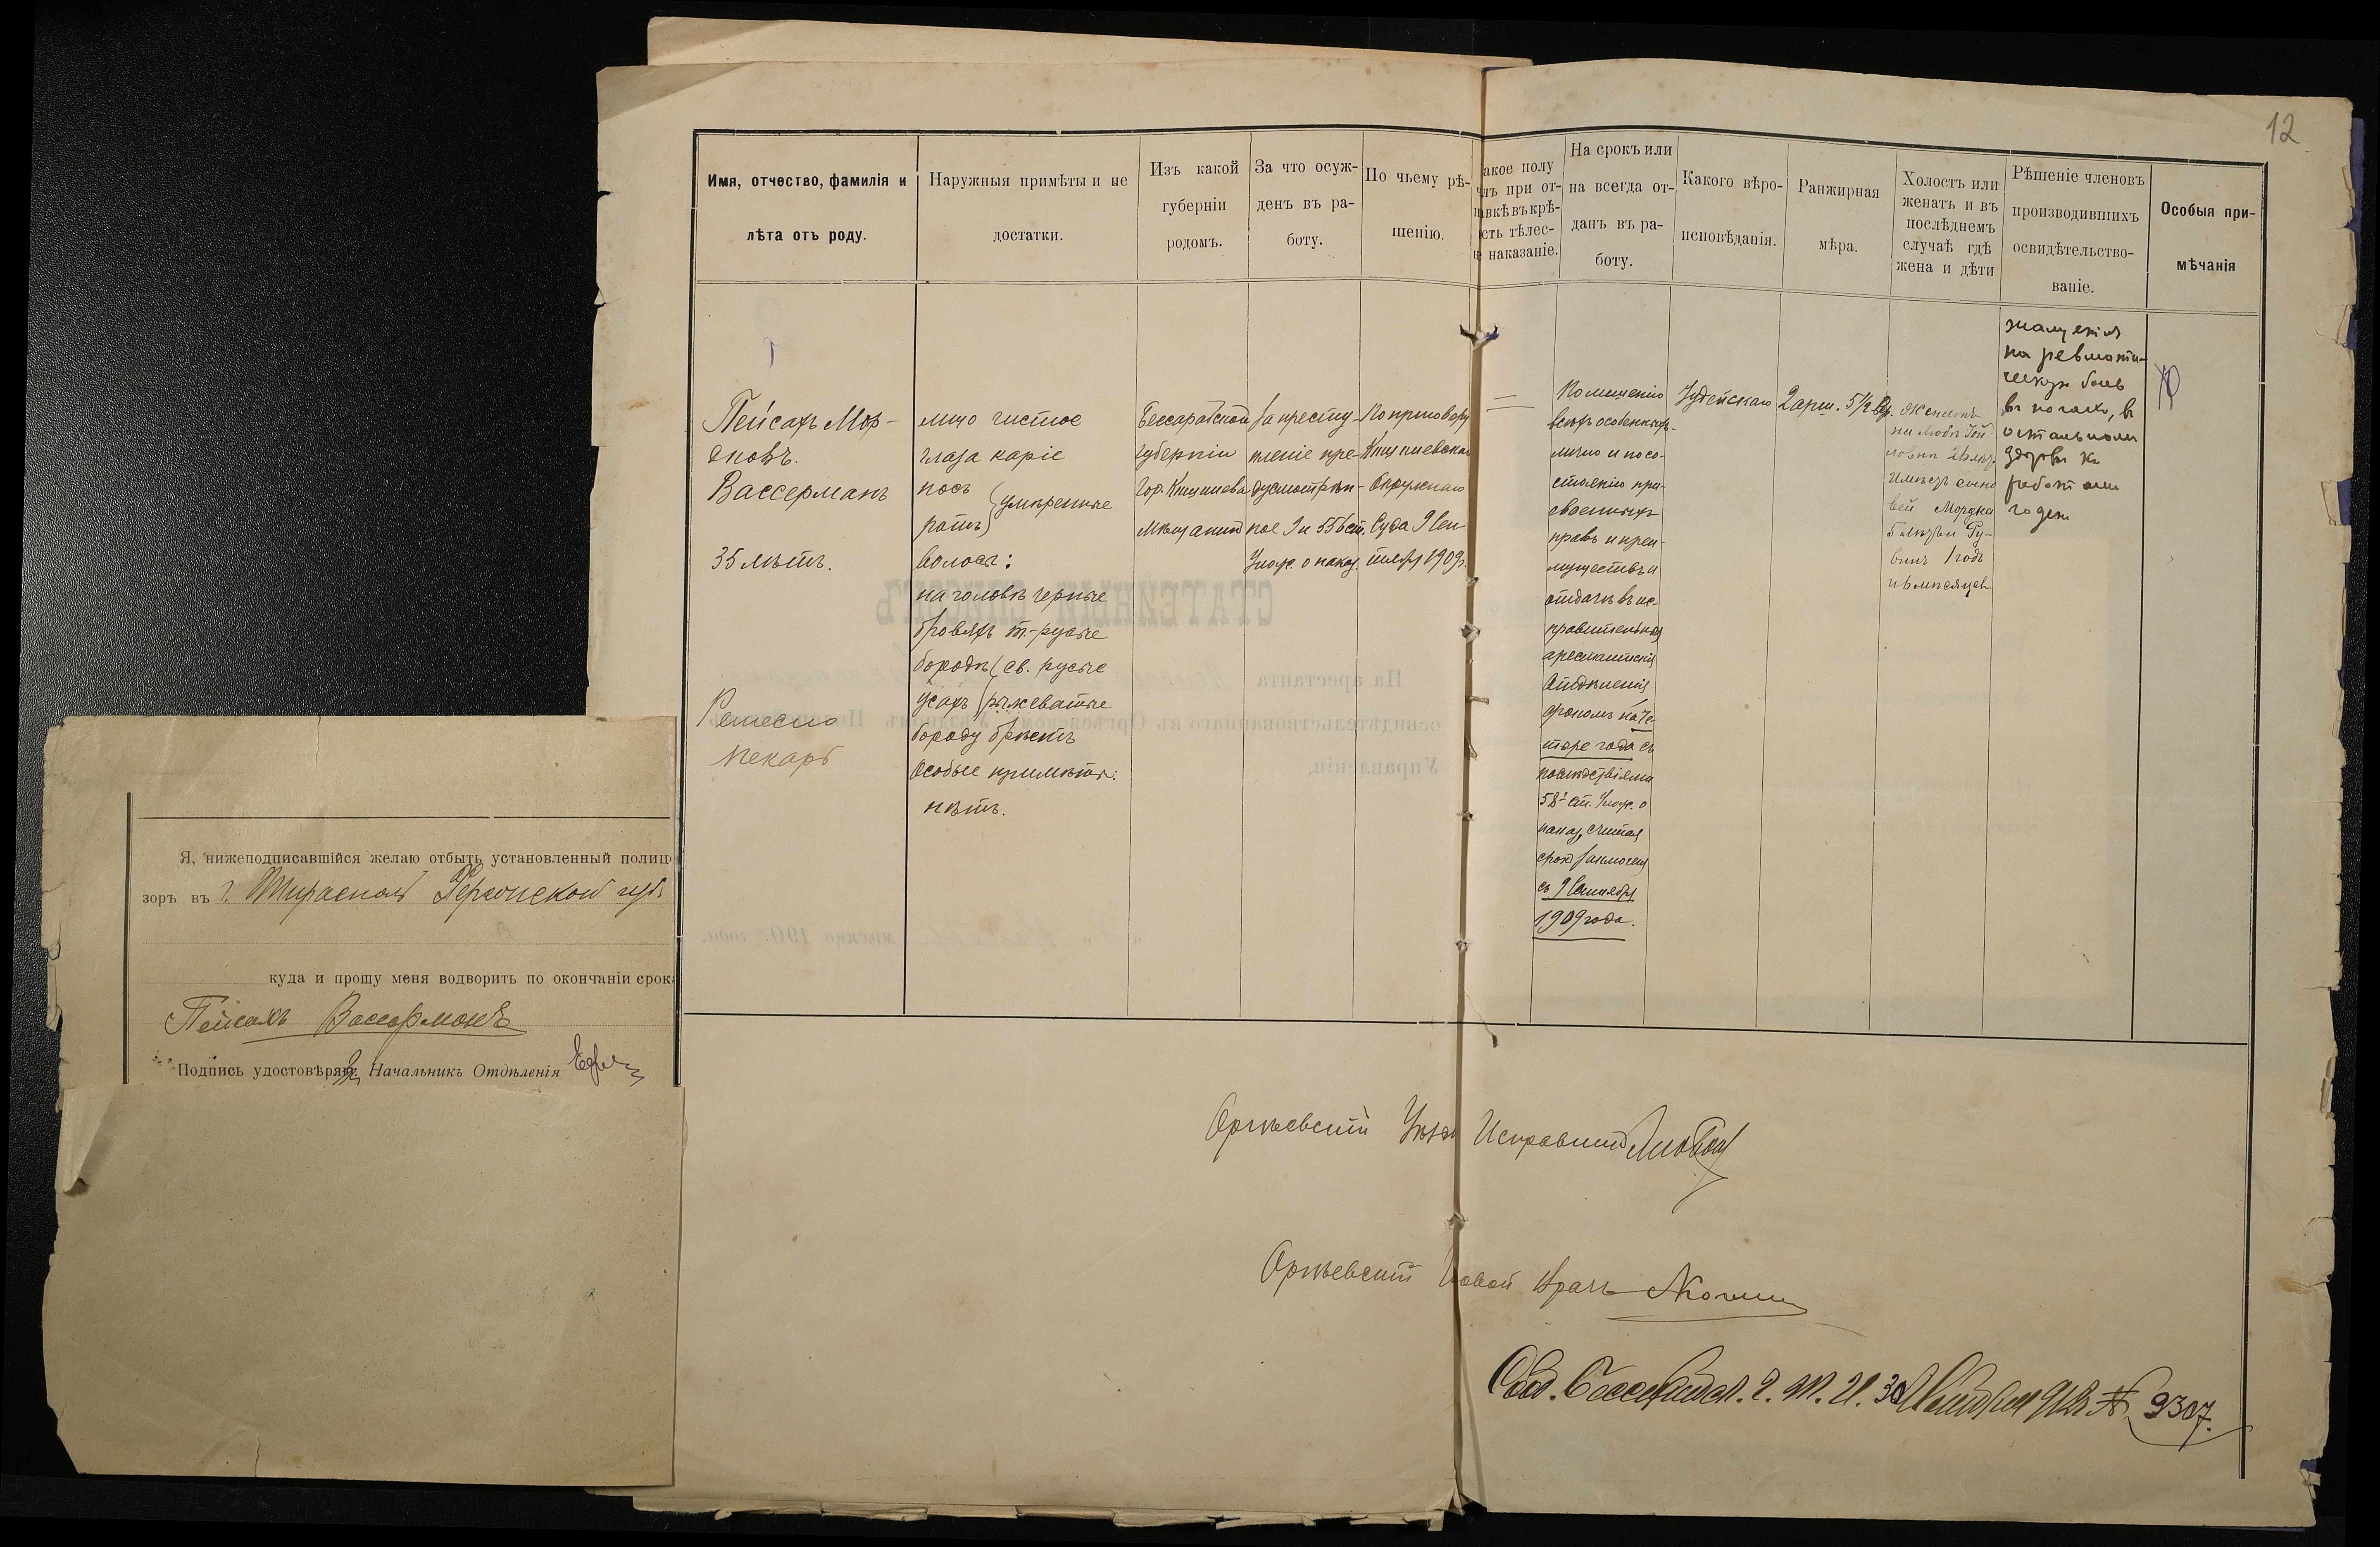 12
Имя, отчество, фамилія и
лѣта отъ роду.
Наружныя примѣты и не
достатки.
Изъ какой
губерніи
родомъ.
За что осуж-
денъ въ ра-
боту.
По чьему рѣ-
шенію.
акое полу
чилъ при от-
правкѣ въ крѣ-
сть тѣлес-
наказаніе.
На срокъ или
на всегда от-
данъ въ ра-
боту.
Какого вѣро-
исповѣданія.
Ранжирная
мѣра.
Холостъ или
женатъ и въ
послѣднемъ
случаѣ гдѣ
жена и дѣти
Рѣшеніе членовъ
производившихъ
освидѣтельство-
ваніе.
Особыя при-
мѣчанія
1
Пейсахъ Мор-
дковъ.
Вассерманъ
35 лѣтъ.
Ремесло
пекарь
лицо чистое
глаза каріе
носъ
ротъ } умѣренные
волосы:
на головѣ черные
бровяхъ т.-русые
бородѣ св. русые
усахъ рыжеватые
бороду брѣетъ
Особые примѣты:
нѣтъ.
Бессарабской
губерніи
гор. Кишинева
мѣщанинъ
За престу-
пленіе пре-
дусмотрѣн-
ное 9 и 1556 ст.
Улож. о наказ.
По приговору
Кишиневскаго
Окружнаго
Суда 9 Сен-
тября 1909 г.
По лишенію
всѣхъ особенныхъ
лично и по со-
стоянію при-
своенныхъ
правъ и преи-
муществъ и
отдачѣ въ ис-
правительныя
арестантскія
Отдѣленія
срокомъ на че-
тыре года съ
послѣдствіями
58¹ ст. Улож. о
наказ, считая
срокъ заключенія
съ 9 Сентября
1909 года.
Іудейскаго
2 арш. 5½ вер.
Женатъ
на
26 лѣтъ
Имѣетъ сыно
вей Мордка
5 лѣтъ и Ру-
винъ 1 годъ
и 6 мѣсяцевъ
жалуется
на ревмати-
ческую боль
въ ногахъ, въ
остальномъ
здоровъ къ
работамъ
годенъ
СТАТЕЙНЫЙ СПИСОКЪ
На арестанта
освидѣтельствованнаго въ Оргѣевскомъ Уѣздномъ Полицейскомъ
Управленіи.
мѣсяца 190 года.
Я, нижеподписавшійся желаю отбыть установленный полиц
зоръ въ г. Тирасполѣ Херсонской губ
куда и прошу меня водворить по окончаніи срока
Пейсахъ Вассерманъ
Подпись удостовѣряю: Начальникъ Отдѣленія
Оргѣевскій Уѣзд Исправникъ
Оргѣевскій Врачъ
9307.